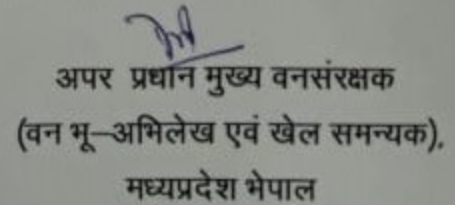 अपर प्रधान मुख्य वनसंरक्षक
(वन भू–अभिलेख एवं खेल समन्यक),
मध्यप्रदेश भेपाल